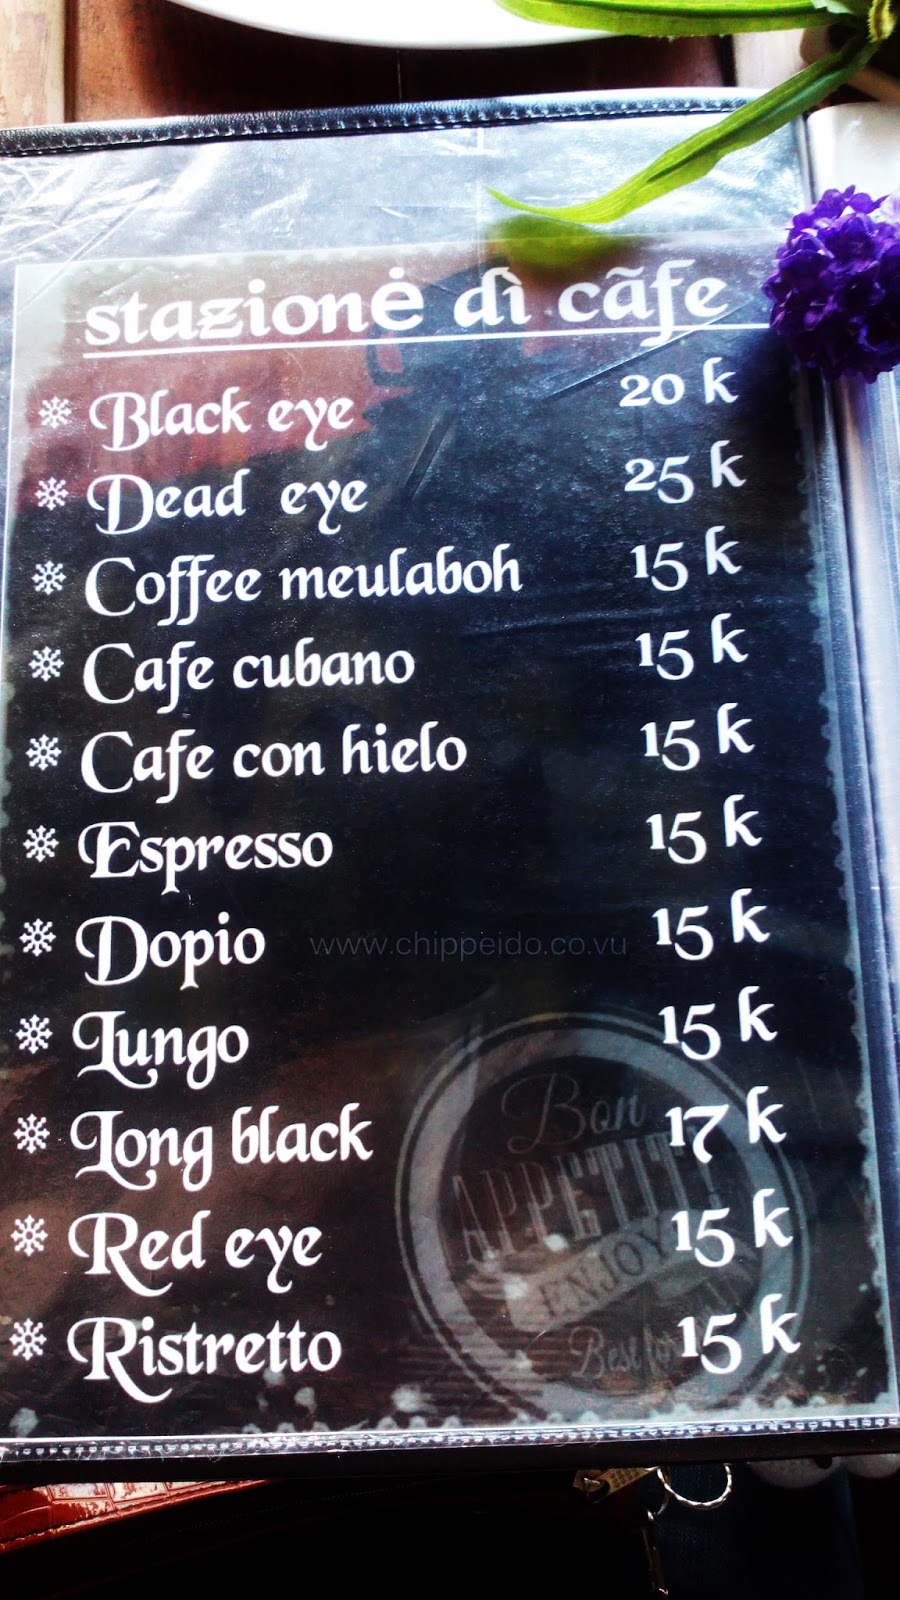 stazionė dì cãfe
Black eye 20 k
Dead eye 25 k
Coffee meulaboh 15 k
Cafe cubano 15 k
Cafe con hielo 15 k
Espresso 15 k
Dopio 15 k
www.chippeido.co.vu
Lungo 15 k
Long black 17 k
Red eye 15 k
Ristretto 15 k
Bon
APPETIT
ENJOY
Best